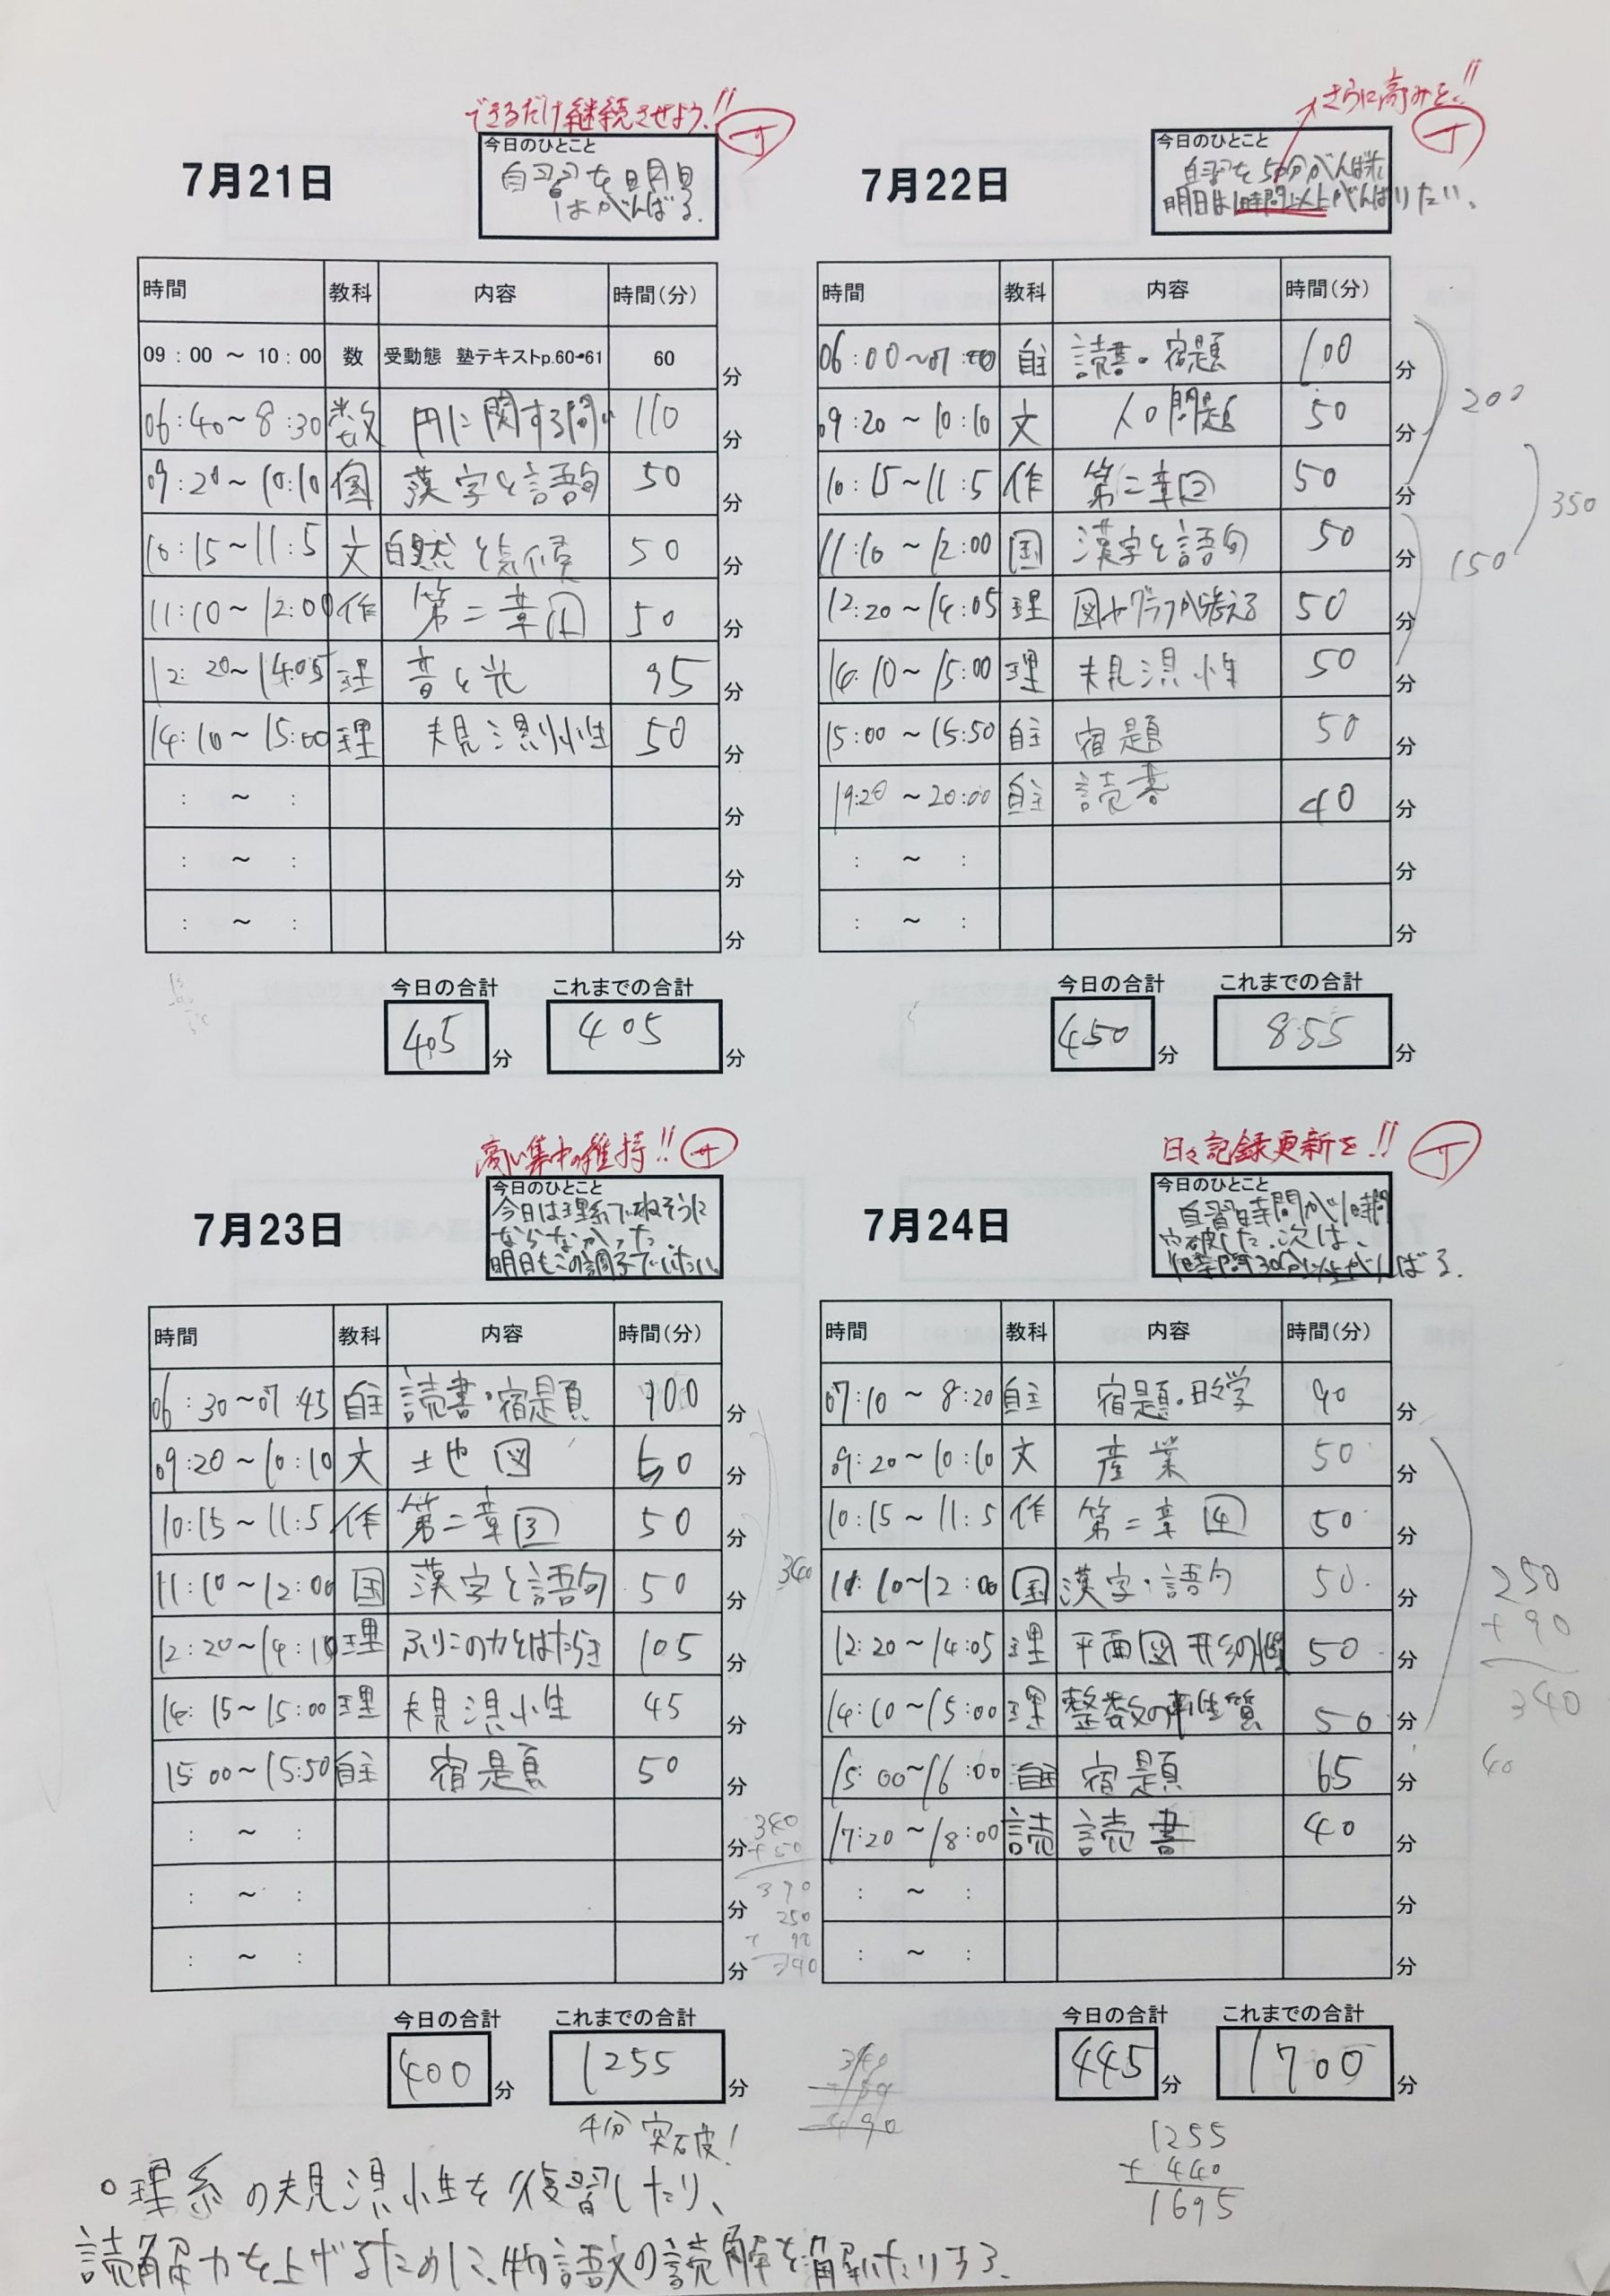 できるだけ継続させよう!!
7月21日
今日のひとこと
自習を明日
はがんばる.
時間 教科 内容 時間(分)
09:00 ～ 10:00 数 受動態 塾テキストp.60-61 60 分
06:40～8:30 数 円に関する問い 110 分
09:20～10:10 国 漢字と語句 50 分
10:15～11:5 文 自然と気候 50 分
11:10～12:00 作 第二章① 50 分
12:20～14:05 理 音と光 95 分
14:10～15:00 理 規則性 50 分
: ～ : 分
: ～ : 分
: ～ : 分
今日の合計 これまでの合計
405 分 405 分
さらに高みを!!
7月22日
今日のひとこと
自習を50分がんばれた
明日は1時間以上がんばりたい。
時間 教科 内容 時間(分)
06:00～07:00 自主 読書・宿題 100 分
09:20～10:10 文 人口問題 50 分
10:15～11:5 作 第二章② 50 分
11:10～12:00 国 漢字と語句 50 分
12:20～14:05 理 図やグラフから考える 50 分
14:10～15:00 理 規則性 50 分
15:00～15:50 自主 宿題 50 分
19:20～20:00 自主 読書 40 分
: ～ : 分
: ～ : 分
200
350
150
今日の合計 これまでの合計
450 分 855 分
高い集中の維持!!
7月23日
今日のひとこと
今日は理系でねそうに
ならなかった
明日もこの調子でいきたい。
時間 教科 内容 時間(分)
06:30～07:45 自主 読書・宿題 100 分
09:20～10:10 文 土地図 50 分
10:15～11:5 作 第二章③ 50 分
11:10～12:00 国 漢字と語句 50 分
12:20～14:10 理 ふりこの力とはたらき 105 分
14:15～15:00 理 規則性 45 分
15:00～15:50 自主 宿題 50 分
: ～ : 分
: ～ : 分
: ～ : 分
340
340
+50
390
250
+ 90
340
今日の合計 これまでの合計
400 分 1255 分
千分突破!
日々記録更新を!!
7月24日
今日のひとこと
自習時間が1時間
突破した.次は、
1時間30分以上がんばる.
時間 教科 内容 時間(分)
07:10 ～ 8:20 自主 宿題・日々学 90 分
09:20～10:10 文 産業 50 分
10:15～11:5 作 第二章④ 50 分
11:10～12:00 国 漢字・語句 50 分
12:20～14:05 理 平面図形の性 50 分
14:10～15:00 理 整数の性質 50 分
15:00～16:00 自主 宿題 65 分
17:20～18:00 読 読書 40 分
: ～ : 分
: ～ : 分
250
+ 90
340
40
今日の合計 これまでの合計
445 分 1700 分
1255
+ 440
1695
。理系の規則性を復習したり、
読解力を上げるために、物語文の読解を解いたりする.